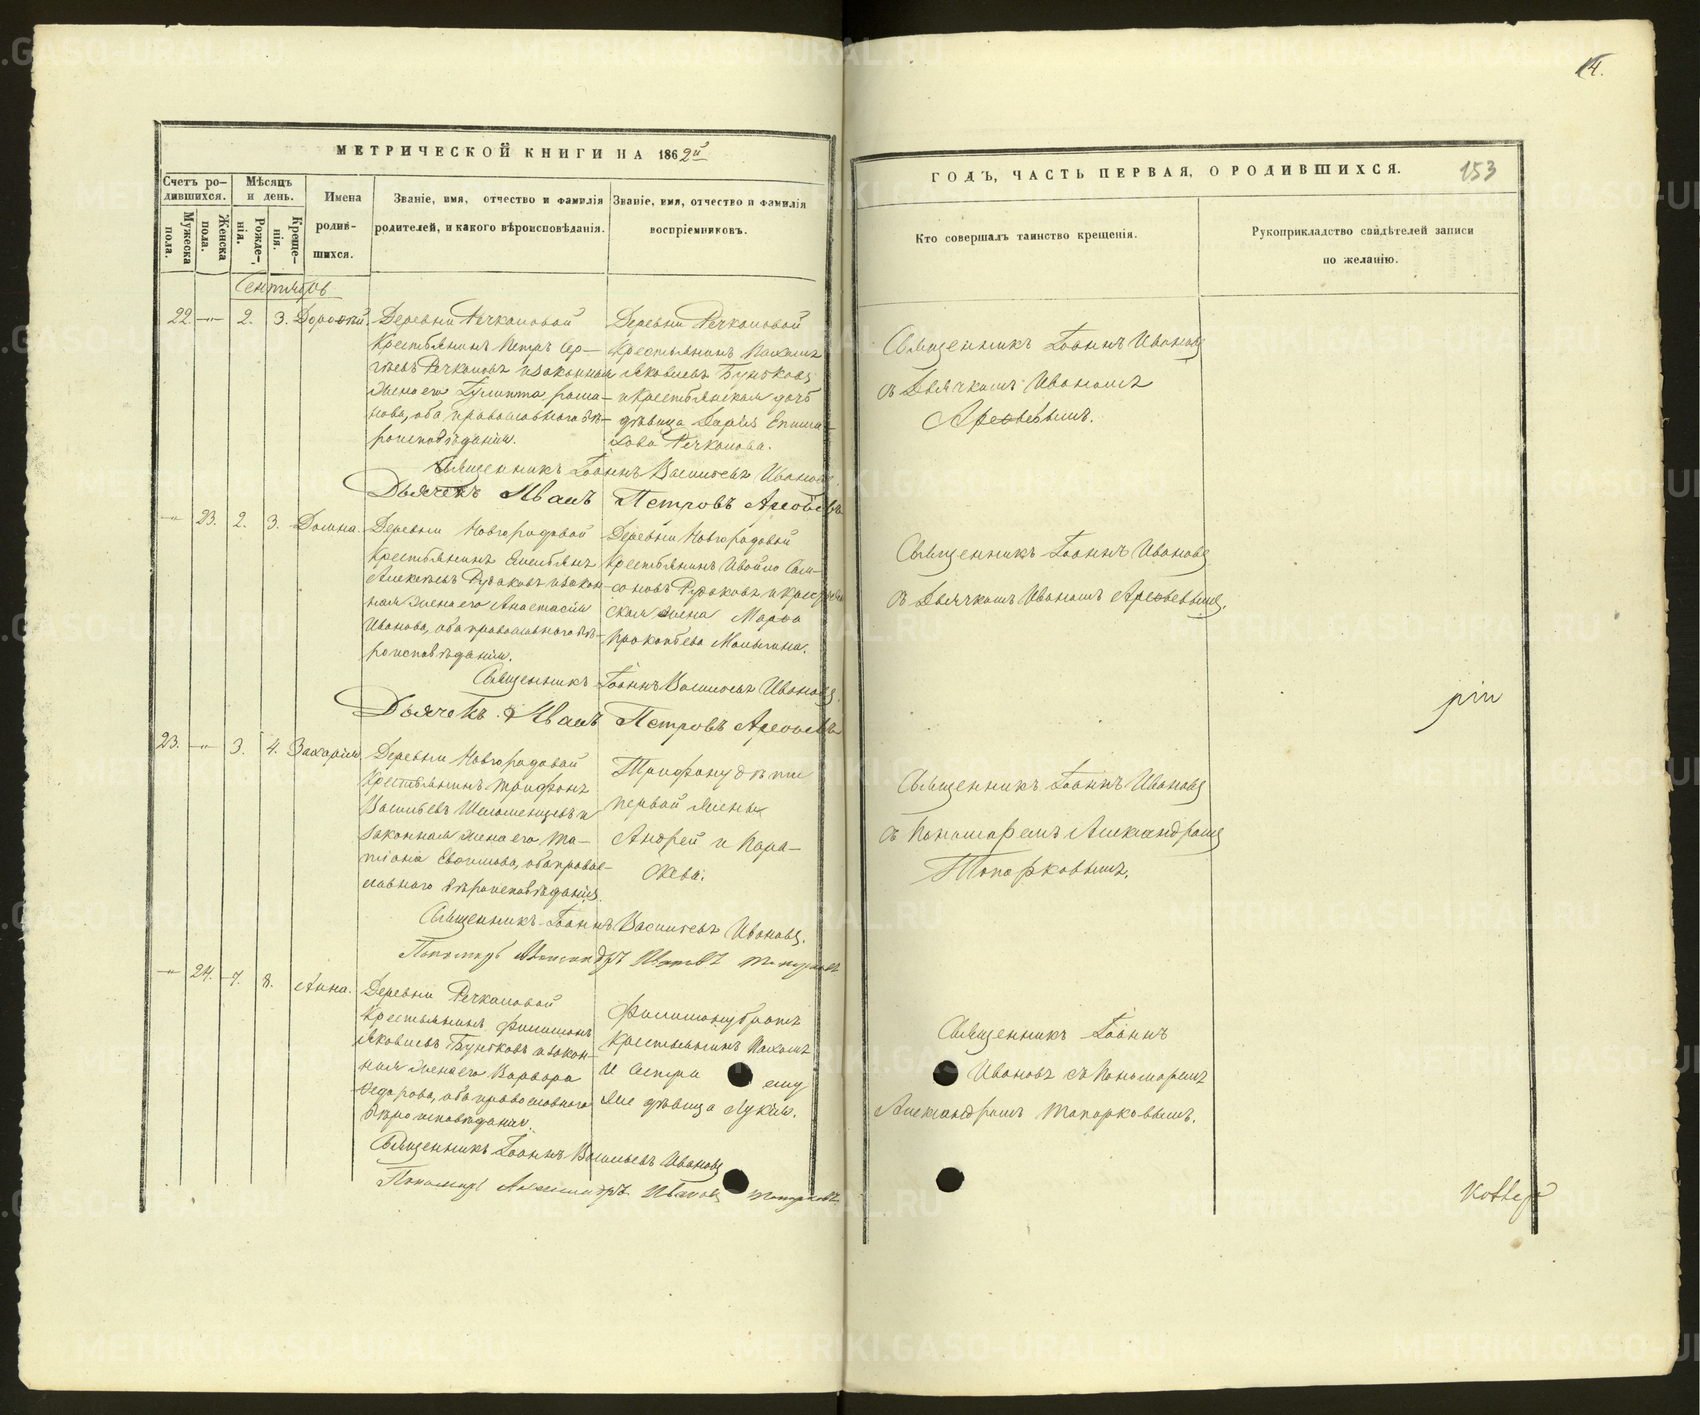 14.
МЕТРИЧЕСКОЙ КНИГИ НА 1862й
ГОДЪ, ЧАСТЬ ПЕРВАЯ, О РОДИВШИХСЯ.
153
Счетъ ро-
дившихся.
Мужеска пола.
Женска пола.
Мѣсяцъ
и день.
Рожде-
нія.
Креще-
нія.
Имена
родив-
шихся.
Званіе, имя, отчество и фамилія
родителей, и какого вѣроисповѣданія.
Званіе, имя, отчество и фамилія
воспріемниковъ.
Кто совершалъ таинство крещенія.
Рукоприкладство свидѣтелей записи
по желанію.
Сентябрь
22. —"— 2. 3.
Деревни Речкаловой
Крестьянинъ Петръ Сер-
гѣевъ Речкаловъ и законная
жена его
нова, оба православнаго вѣ-
роисповѣданія.
Деревни Речкаловой
Крестьянинъ Пахомъ
Яковлевъ Буньковъ
и крестьянская дочь
дѣвица Дарья
Речкалова.
Священникъ Іоаннъ Ивановъ
съ Дьячкомъ Иваномъ
Арефьевымъ.
Священникъ Іоаннъ Васильевъ Ивановъ
Дьячекъ Иванъ Петровъ Арефьевъ
—"— 23. 2. 3. Домна.
Деревни Новгородовой
Крестьянинъ Емельянъ
Алексѣевъ Русаковъ и закон-
ная жена его Анастасія
Иванова, оба православнаго вѣ-
роисповѣданія.
Деревни Новгородовой
Крестьянинъ Измайло Сам-
соновъ Русаковъ и крестьян
ская жена Марфа
Прокопьева Малыгина.
Священникъ Іоаннъ Ивановъ
съ Дьячкомъ Иваномъ Арефьевымъ.
Священникъ Іоаннъ Васильевъ Ивановъ
Дьячекъ Иванъ Петровъ Арефьевъ
23. —"— 3. 4. Захарія
Деревни Новгородовой
Крестьянинъ Трифонъ
Васильевъ Шеломенцевъ и
законная жена его Та-
тіана Евфимова, оба право-
славнаго вѣроисповѣданія.
Трифону дѣти
первой жены
Андрей и Пара-
скева.
Священникъ Іоаннъ Ивановъ
съ Пономаремъ Александромъ
Топорковымъ.
Священникъ Іоаннъ Васильевъ Ивановъ.
Пономарь Александръ Ивановъ Топорковъ
—"— 24. 7. 8. Анна.
Деревни Речкаловой
Крестьянинъ Филимонъ
Яковлевъ Буньковъ и закон-
ная жена его Варвара
Федорова, оба православнаго
вѣроисповѣданія.
Филимону братъ
Крестьянинъ Пахомъ
и сестра ему
же дѣвица Лукія.
Священникъ Іоаннъ
Ивановъ съ Пономаремъ
Александромъ Топорковымъ.
Священникъ Іоаннъ Васильевъ Ивановъ
Пономарь Александръ Ивановъ Топорковъ
METRIKI.GASO-URAL.RU